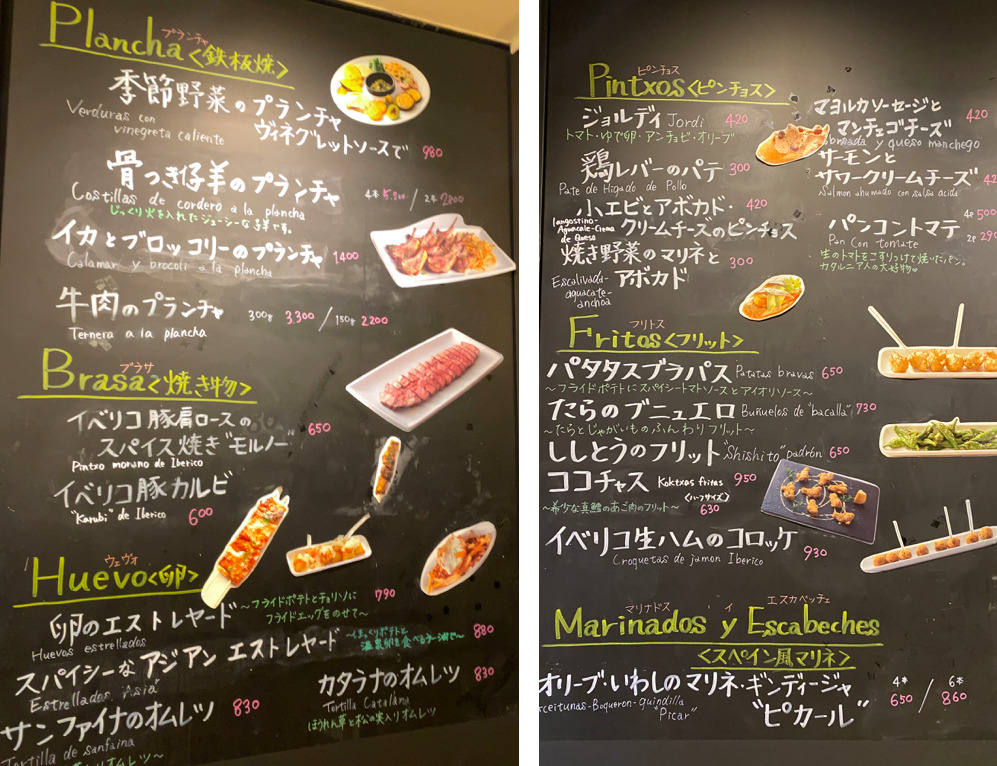 プランチャ
Plancha<鉄板焼>
季節野菜のプランチャ
ヴィネグレットソースで 980
Verduras con
vinegreta caliente
骨つき仔羊のプランチャ
Costillas de cordero a la plancha 4本 / 2本
じっくり火を入れたジューシーな子羊です。
イカとブロッコリーのプランチャ 1400
Calamar y brocoli a la plancha
牛肉のプランチャ 300g 3,300 / 150g 2200
Ternera a la plancha
ブラサ
Brasa<焼き物>
イベリコ豚肩ロースの
スパイス焼き"モルノー" 650
Pintxo moruno de Iberico
イベリコ豚カルビ
"Karubi" de Iberico 600
ウェヴォ
Huevo<卵>
卵のエストレヤード ～フライドポテトとチョリソに 790
フライドエッグをのせて～
Huevos estrellados
スパイシーなアジアンエストレヤード 880
Estrellados "Asia"
サンファイナのオムレツ 830
Tortilla de sanfaina
カタラナのオムレツ 830
Tortilla Catalana
ほうれん草と松の実入りオムレツ
ピンチョス
Pintxos<ピンチョス>
ジョルディ Jordi 420
トマト・ゆで卵・アンチョビ・オリーブ
鶏レバーのパテ 300
Pate de Higado de Pollo
小エビとアボカド・ 420
クリームチーズのピンチョス
langostino-
Aguacate-Crema
de Queso
焼き野菜のマリネと 300
アボカド
Escalivada-
aguacate-
anchoa
マヨルカソーセージと
マンチェゴチーズ 420
brasada y queso manchego
サーモンと
サワークリームチーズ
Salmon ahumado con salsa acida
パンコントマテ 4p 500
Pan con tomate 2p
生のトマトをこすりつけて焼いたパン。
カタルニア人の大好物♡
フリトス
Fritos<フリット>
パタタスブラバス Patatas bravas 650
～フライドポテトにスパイシートマトソースとアイオリソース～
たらのブニュエロ Buñuelos de "bacalla" 730
～たらとじゃがいものふんわりフリット～
ししとうのフリット "Shishito" padrón 650
ココチャス Koktxas fritas 950
<ハーフサイズ>
～希少な真鱈のあご肉のフリット～ 630
イベリコ生ハムのコロッケ 930
Croquetas de jamon Iberico
マリナドス イ エスカベッチェ
Marinados y Escabeches
<スペイン風マリネ>
オリーブ・いわしのマリネ・ギンディージャ 4本 650 / 6本 860
ceitunas-Boqueron-guindilla
"Picar" "ピカール"